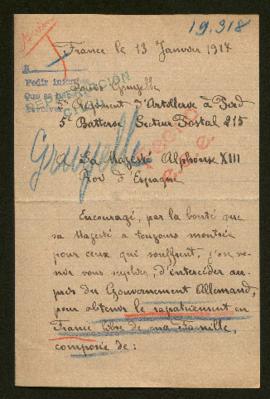 19,318
France le 13 Janvier 1917
Pedir informe
Gruyelle
Régiment d'Artillerie à Pied
5e Batterie Secteur Postal 215
Gruyelle
Sa Majesté Alphonse XIII
Roi d'Espagne
Encouragé, par la bonté que
sa Majesté a toujours montrée
pour ceux qui souffrent, j'ose
venir vous supplier d'intercéder au-
près du Gouvernement Allemand,
pour obtenir le rapatriement en
France libre de ma Famille,
composée de: